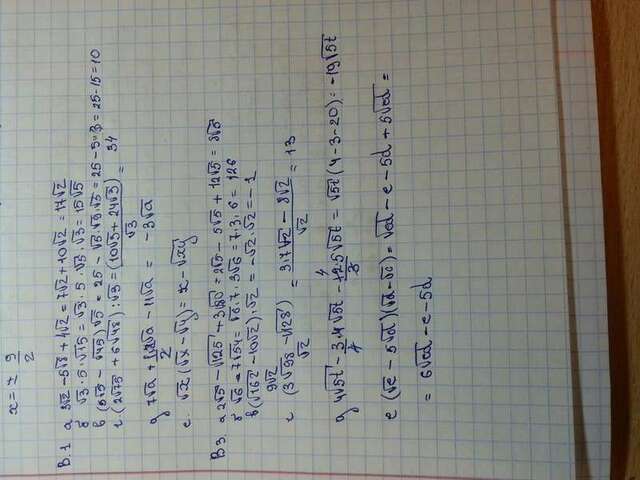 x = ± 9/2
В.1 а 3√2 - 5√8 + 4√2 = 7√2 + 10√2 = 17√2
б √3·5·√15 = √3·5·√3·√3 = 15√5
в (5√5 - √45)√5 = 25 - √5·√9·√5 = 25 - 5·3 = 25 - 15 = 10
г (2√75 + 6√48) : √3 = (10√3 + 24√3) / √3 = 34
g 7√a + √a - 11√a = -3√a
е. √x (√x - √y) = x - √xy
В3. а 2√5 - √125 + 3√80 = 2√5 - 5√5 + 12√5 = 8√5
б √6 = 7√54 = √6·7·3√6 = 7·3·6 = 126
в (√162 - 10√2)·√2 = -√2·√2 = -2
9√2
г (3√98 - √128) / √2 = 3·7√2 - 8√2 / √2 = 13
g 4√5t - 3·4√5t / 4 - 12·5√5t / 3 = √5t (4 - 3 - 20) = -19√5t
е (√c - 5√d)(√d - √c) = √cd - c - 5d + 5√cd =
= 6√cd - c - 5d